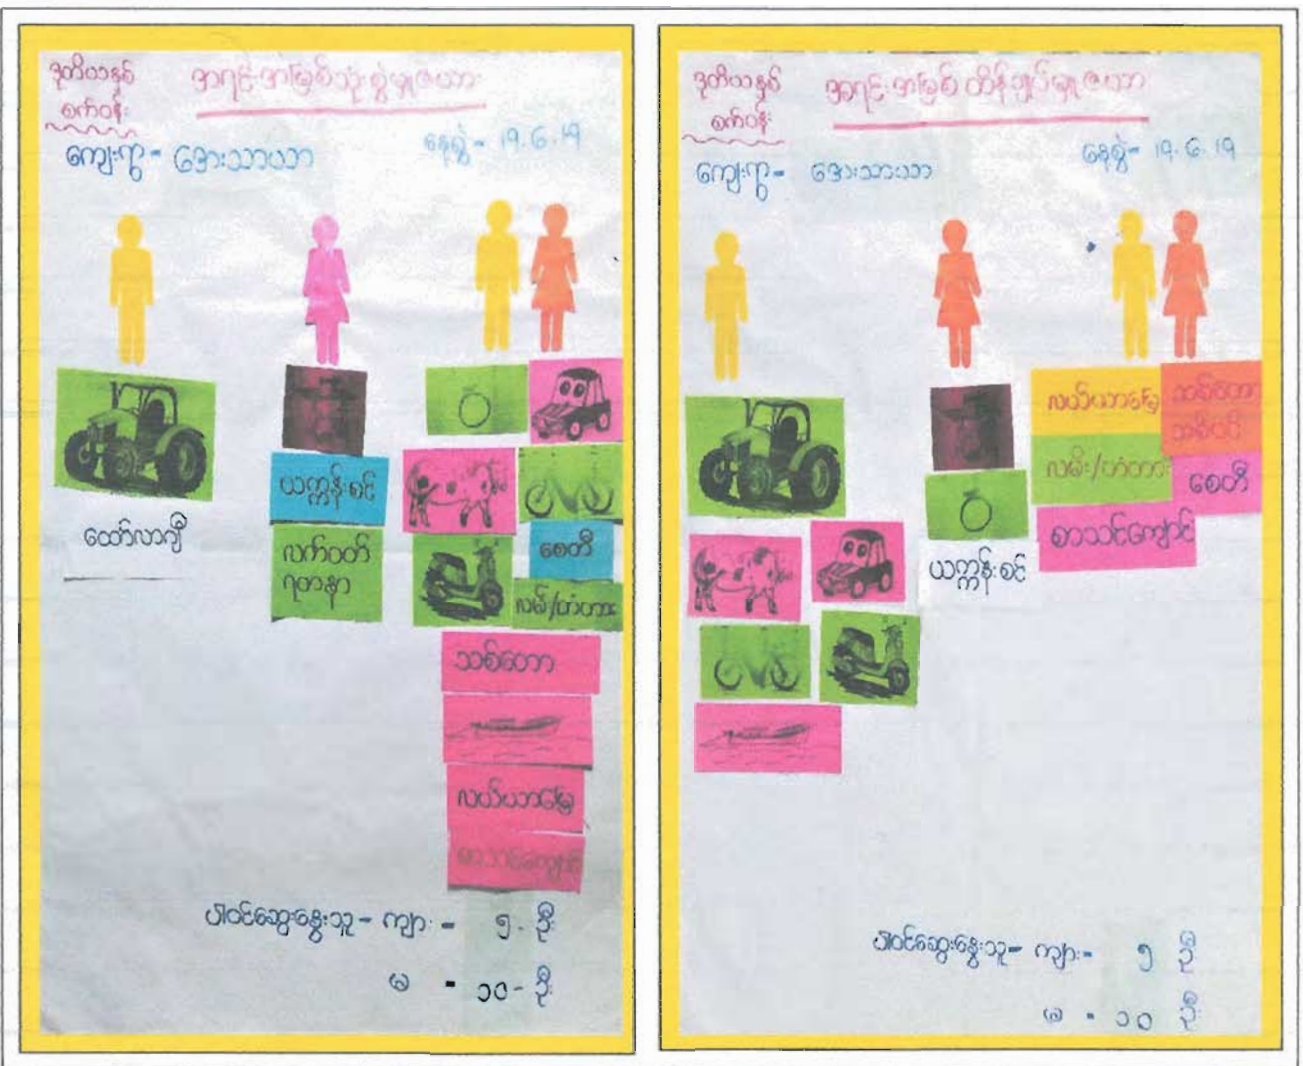 ဒုတိယနှစ်
စက်ဝန်း
အရင်းအမြစ်သုံးစွဲမှုဇယား
ကျေးရွာ - အေးသာယာ
နေ့စွဲ - ၁၉.၆.၁၉
ထော်လာဂျီ
ယက္ကန်းစင်
လက်ဝတ်
ရတနာ
စေတီ
လမ်း/တံတား
သစ်တော
လယ်ယာမြေ
စာသင်ကျောင်း
ပါဝင်ဆွေးနွေးသူ - ကျား - ၅ - ဦး
မ - ၁၀ - ဦး
ဒုတိယနှစ်
စက်ဝန်း
အရင်းအမြစ်ထိန်းချုပ်မှုဇယား
ကျေးရွာ - အေးသာယာ
နေ့စွဲ - ၁၉.၆.၁၉
ယက္ကန်းစင်
လယ်ယာမြေ
သစ်တော
လမ်း/တံတား
စေတီ
စာသင်ကျောင်း
ပါဝင်ဆွေးနွေးသူ - ကျား - ၅ ဦး
မ - ၁၀ ဦး